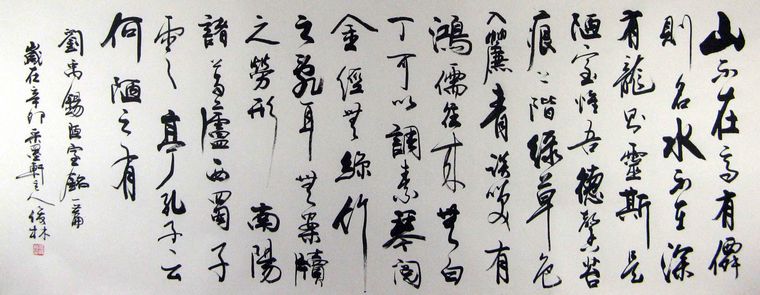 山不在高有僊
則名水不在深
有龍則靈斯是
陋室惟吾德馨苔
痕上階綠草色
入簾青談笑有
鴻儒往來無白
丁可以調素琴閱
金經無絲竹
之亂耳無案牘
之勞形 南陽
諸葛廬西蜀子
雲之亭孔子云
何陋之有
劉禹錫陋室銘一篇
歲在辛卯墨軒主人俊林